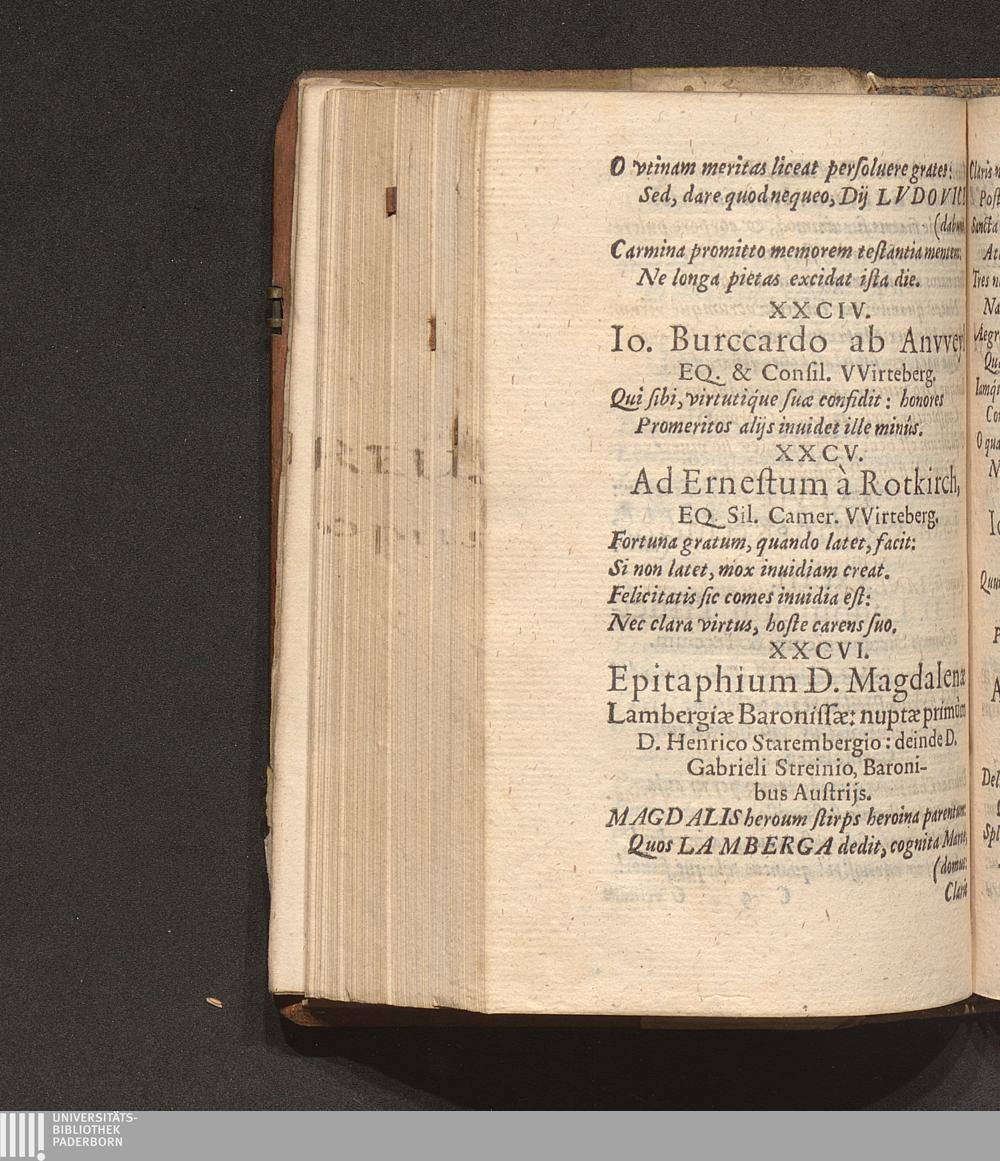 O vtinam meritas liceat perſoluere grates:
Sed, dare quod nequeo, Dij LVDOVICE
(dabunt
Carmina promitto memorem teſtantia mentem:
Ne longa pietas excidat iſta die.
XXCIV.
Io. Burccardo ab Anvveyl
EQ. & Conſil. VVirteberg.
Qui ſibi, virtutiq́ue ſuæ confidit: honores
Promeritos alijs inuidet ille minùs.
XXCV.
Ad Erneſtum à Rotkirch,
EQ. Sil. Camer. VVirteberg.
Fortuna gratum, quando latet, facit:
Si non latet, mox inuidiam creat.
Felicitatis ſic comes inuidia eſt:
Nec clara virtus, hoſte carens ſuo.
XXCVI.
Epitaphium D. Magdalenæ
Lambergiæ Baroniſſæ: nuptæ primùm
D. Henrico Starembergio: deinde D.
Gabrieli Streinio, Baroni-
bus Auſtrijs.
MAGDALIS heroum ſtirps heroina parentum:
Quos LAMBERGA dedit, cognita Marte,
(domus:
Claris
Claris
Poſt
Sancta
Tres
Aegr
O qua
Del
Spl
UNIVERSITÄTS-
BIBLIOTHEK
PADERBORN